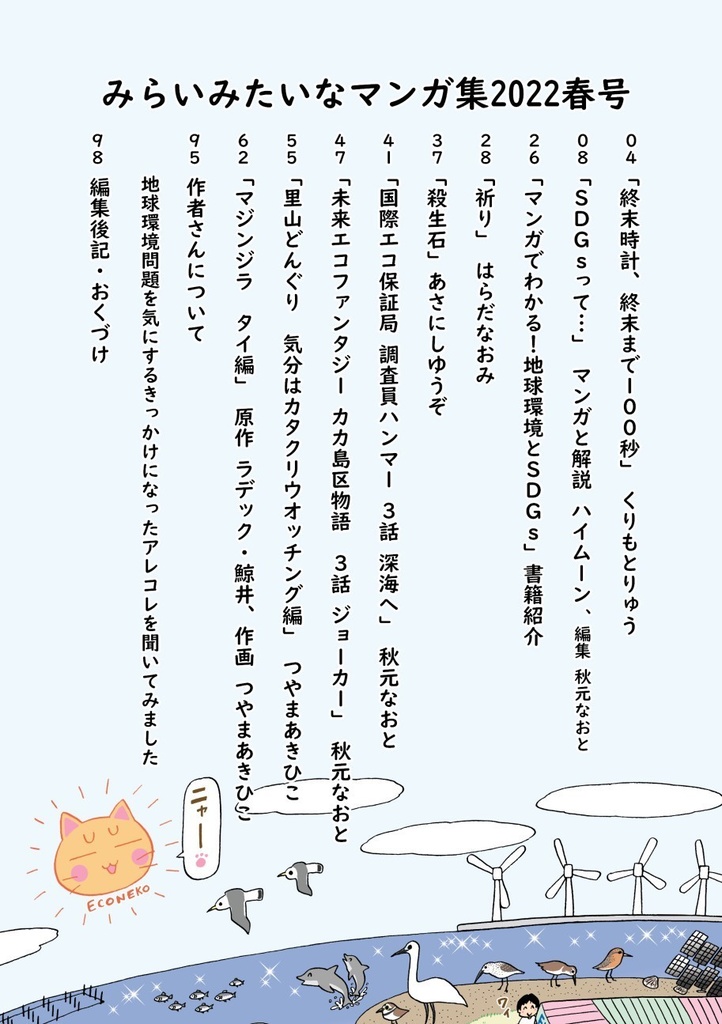 みらいみたいなマンガ集2022春号
04 「終末時計、終末まで100秒」 くりもとりゅう
08 「SDGsって…」 マンガと解説 ハイムーン、編集 秋元なおと
26 「マンガでわかる!地球環境とSDGs」書籍紹介
28 「祈り」 はらだなおみ
37 「殺生石」あさにしゆうぞ
41 「国際エコ保証局 調査員ハンマー 3話 深海へ」 秋元なおと
47 「未来エコファンタジー カカ島区物語 3話 ジョーカー」 秋元なおと
55 「里山どんぐり 気分はカタクリウオッチング編」 つやまあきひこ
62 「マジンジラ タイ編」 原作 ラデック・鯨井、作画 つやまあきひこ
95 作者さんについて
地球環境問題を気にするきっかけになったアレコレを聞いてみました
98 編集後記・おくづけ
ニャー
ECONEKO
ワイ